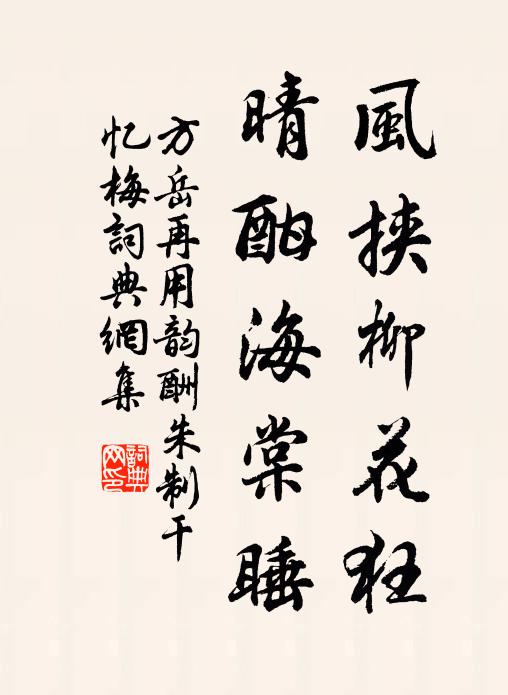 風挾柳花狂
晴酣海棠睡
方岳再用韵酬朱制干
忆梅詞典網集
詞典网印